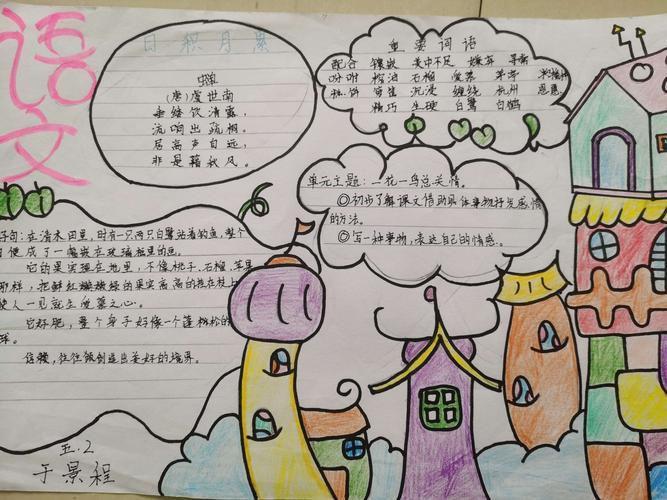 语文
日积月累
蝉
(唐)虞世南
垂緌饮清露,
流响出疏桐。
居高声自远,
非是藉秋风。
重要词语
配合 镶嵌 美中不足 嫌弃 寻常
吩咐 榨油 石榴 爱慕 茅亭
便宜 沉浸 缠绕 杭州 恩惠
精巧 生硬 白鹭 白鹤
单元主题:一花一鸟总关情。
◎初步了解课文借助具体事物抒发感情
的方法。
◎写一种事物,表达自己的情感。
好句:在清水田里,时有一只两只白鹭站着钓鱼,整个
便成了一幅嵌在玻璃框里的画。
它的果实埋在地里,不像桃子、石榴、苹果
那样,把鲜红嫩绿的果实高高的挂在枝上
使人一见就生爱慕之心。
它好肥,整个身子好像一个蓬松的
球。
信赖,往往能创造出美好的境界。
五.2
于景程